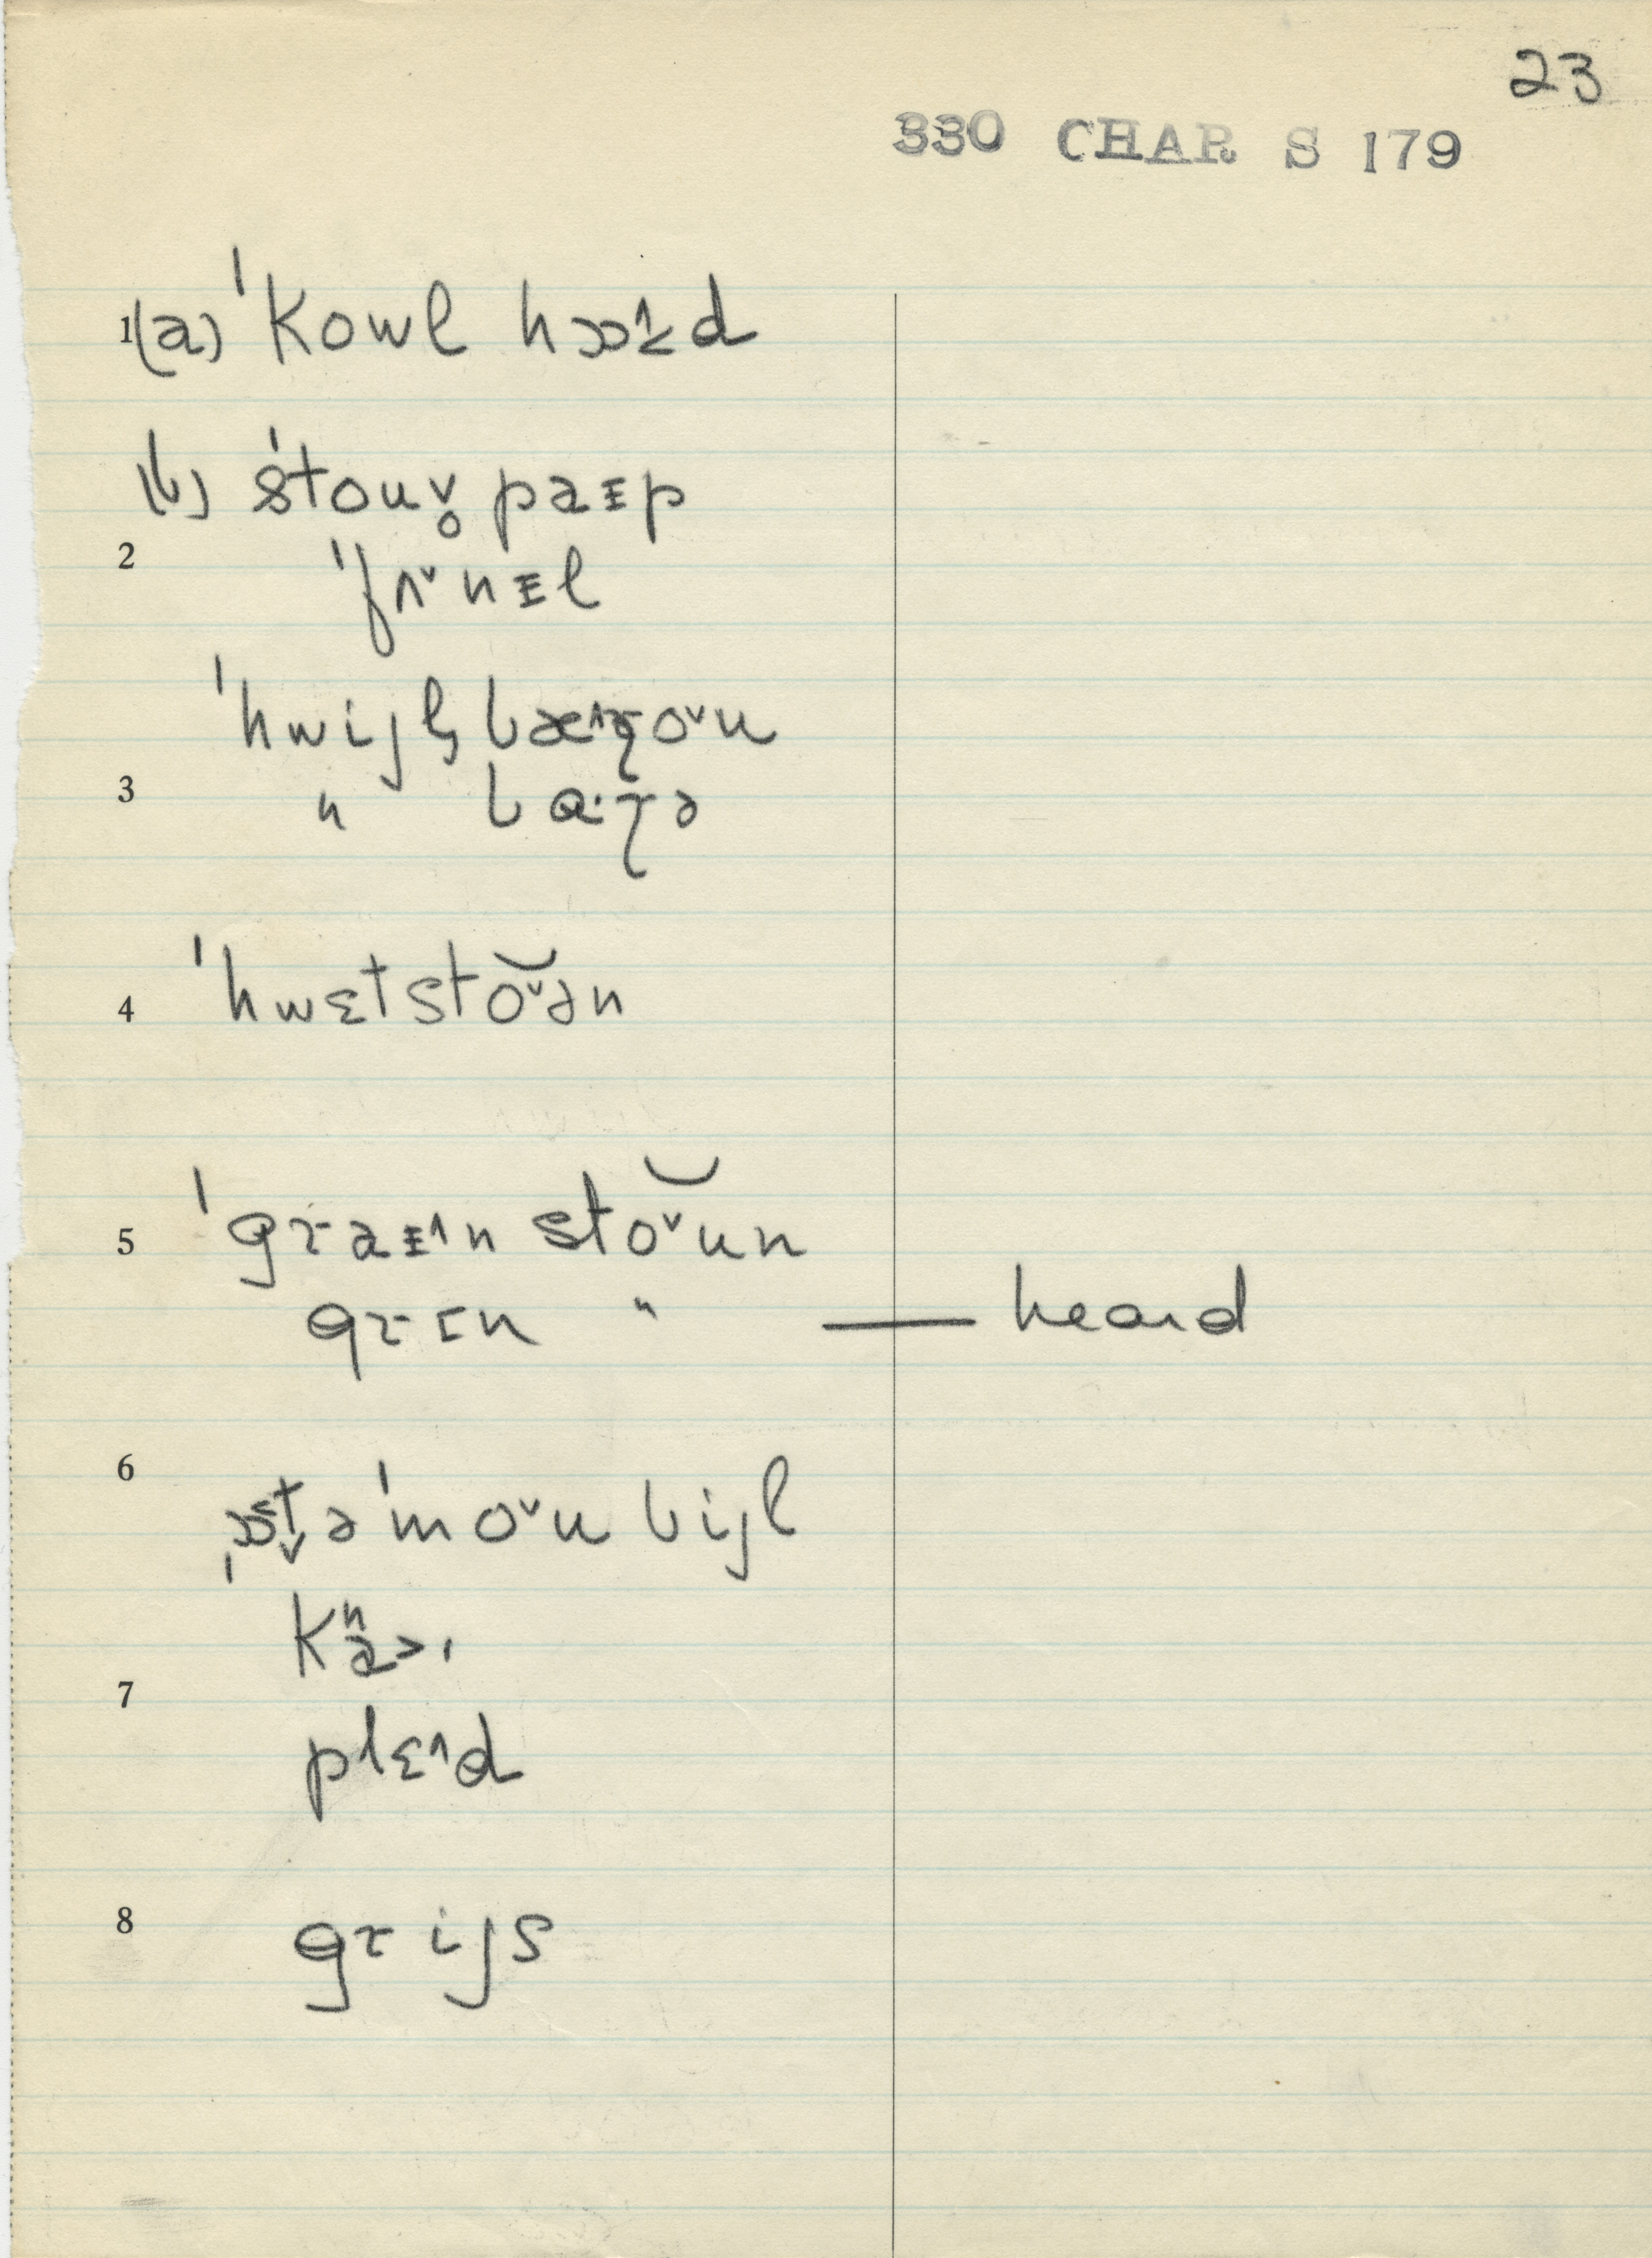 23
330 CHAR S 179
1(a) ˈkowl hɔɔ˄ɪd
(b) ˈstouv̥ paɪp
2
ˈfʌ˅nɪl
ˈhwijl̩ bæ˄ɽo˅u
3 〃 bɑ·ɽə
4 ˈhwɛtsto˅ən
5 ˈgraɪ˄n sto˅un
grɪn 〃 — heard
6
ˌɔt̬əˈmo˅ubijl
7
plɛ˄ɪd
8 grijs